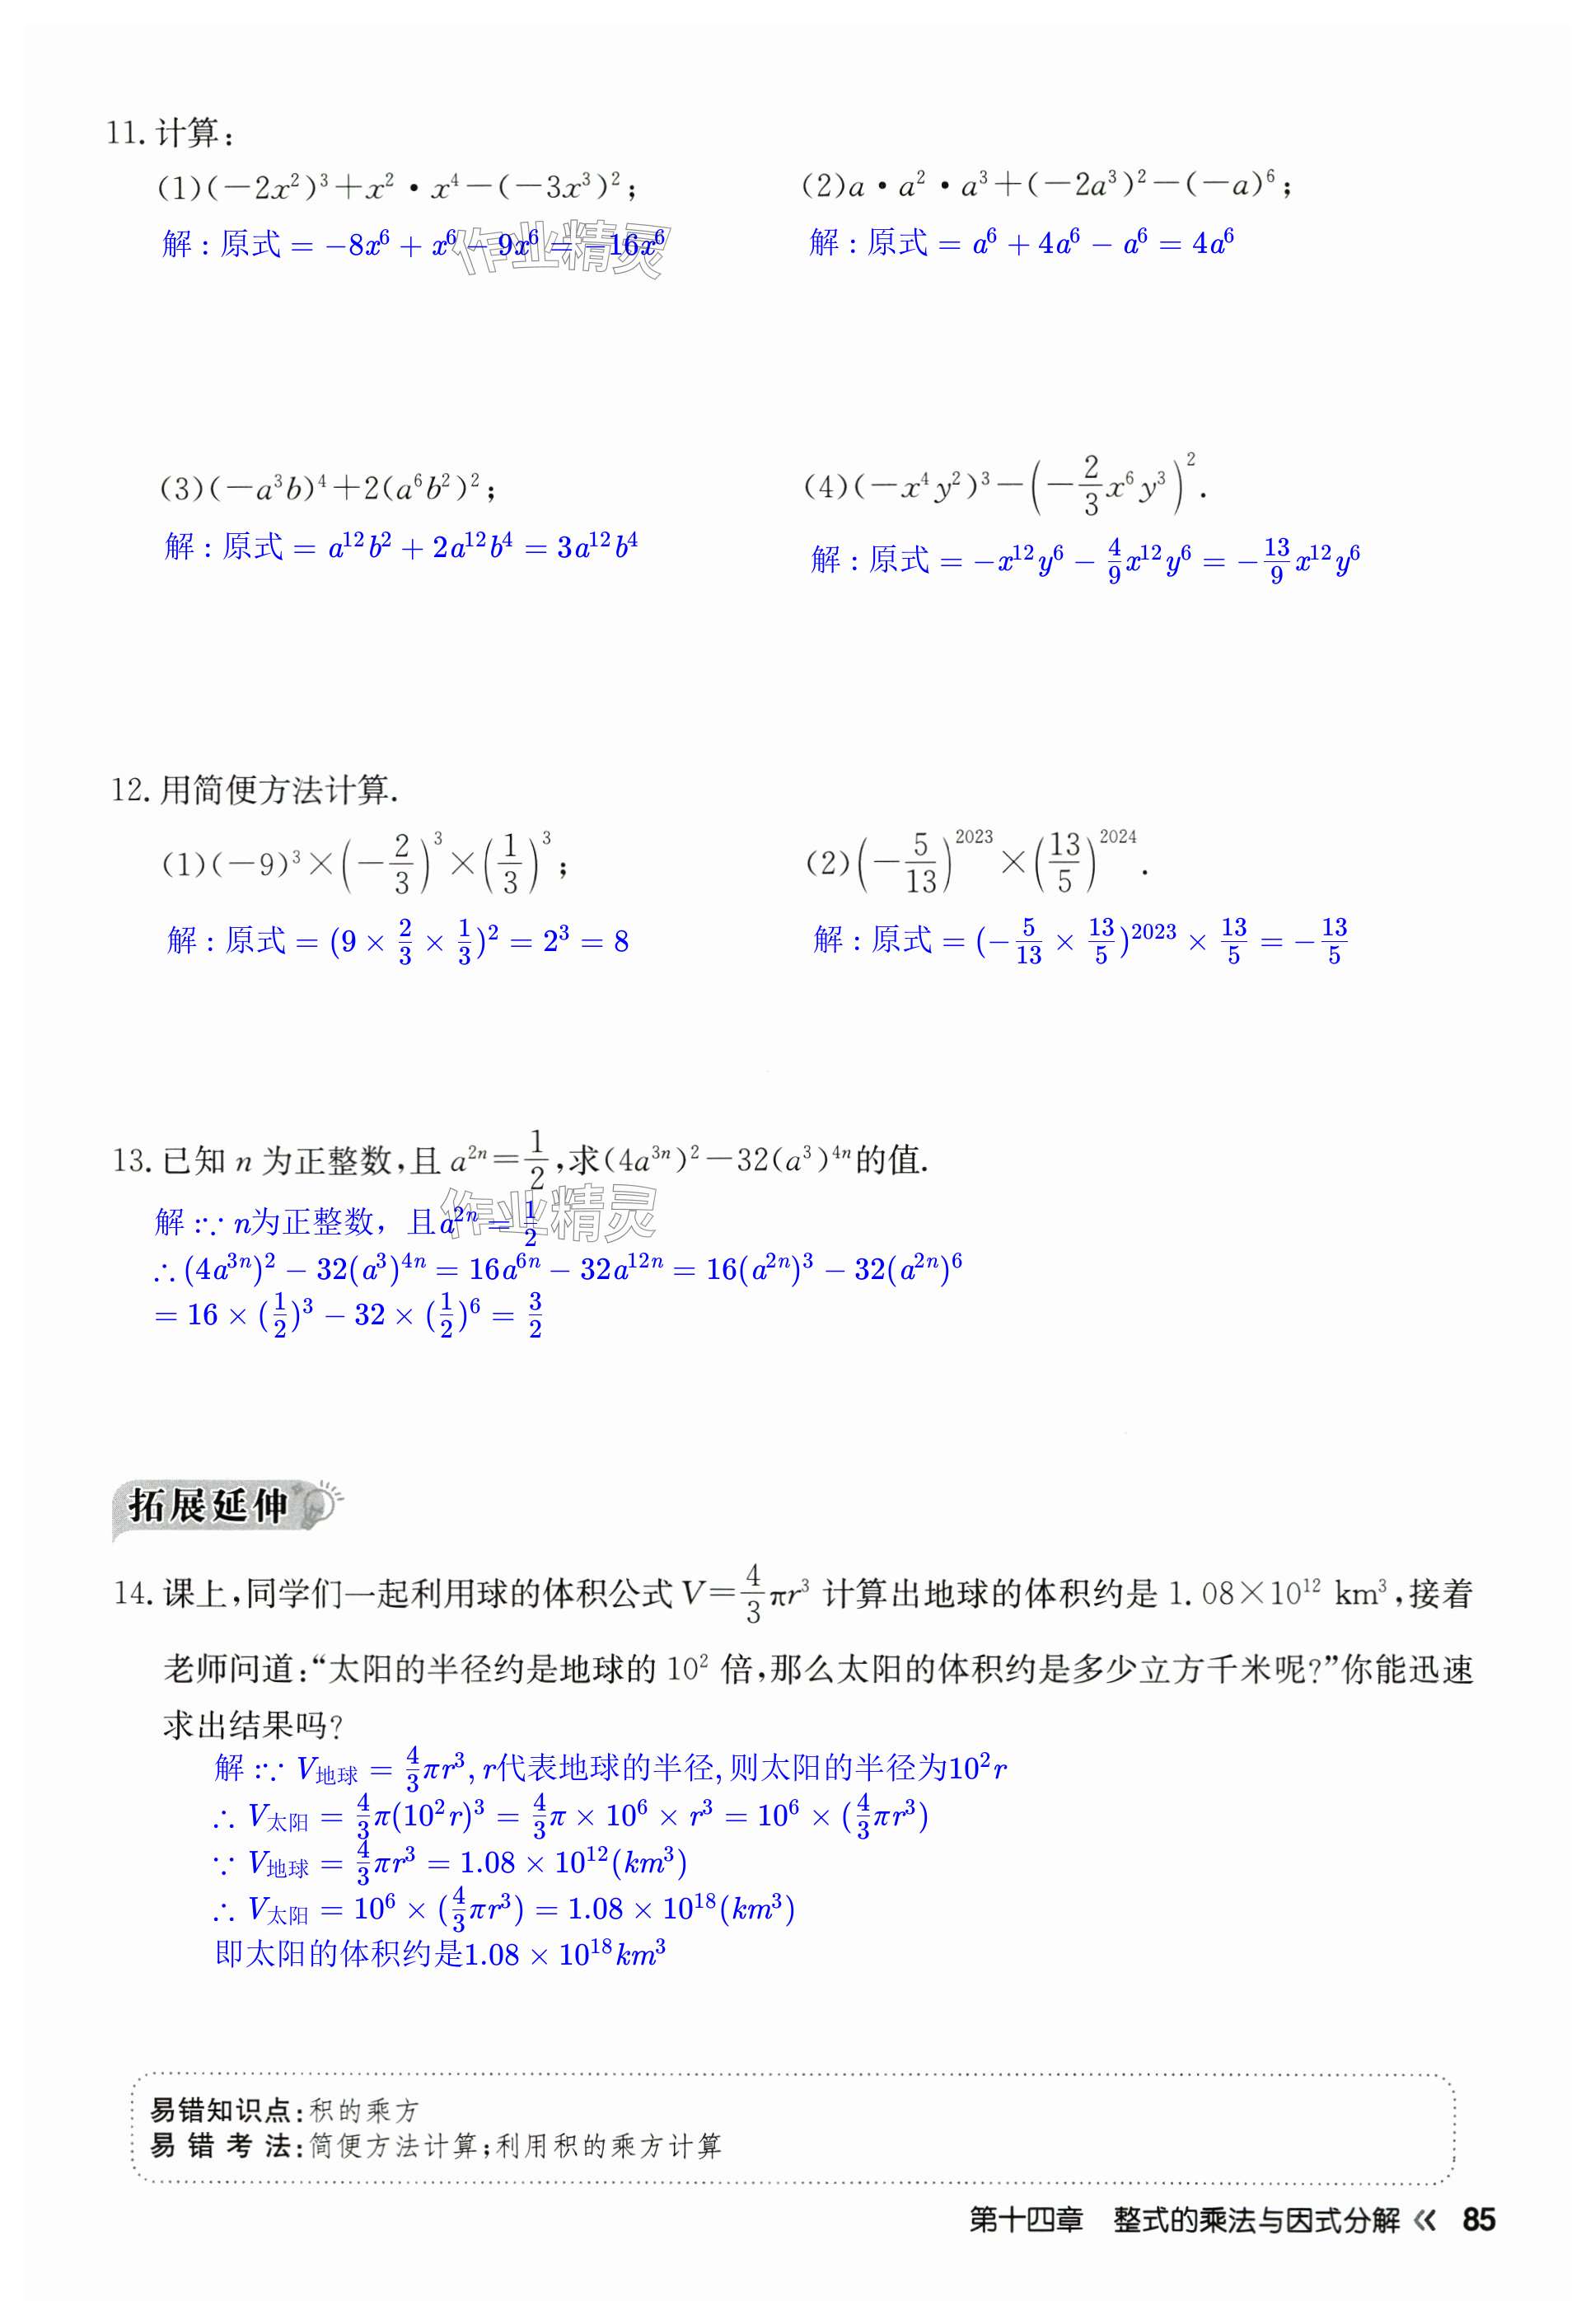 11. 计算：
(1)(−2x²)³＋x²・x⁴−(−3x³)²；
(2)a・a²・a³＋(−2a³)²−(−a)⁶；
解：原式 = −8x⁶ + x⁶ − 9x⁶ = −16x⁶
解：原式 = a⁶ + 4a⁶ − a⁶ = 4a⁶
作业精灵
(3)(−a³b)⁴＋2(a⁶b²)²；
(4)(−x⁴y²)³−(−2/3 x⁶y³)².
解：原式 = a¹²b² + 2a¹²b⁴ = 3a¹²b⁴
解：原式 = −x¹²y⁶ − 4/9 x¹²y⁶ = −13/9 x¹²y⁶
12. 用简便方法计算.
(1)(−9)³×(−2/3)³×(1/3)³；
(2)(−5/13)²⁰²³×(13/5)²⁰²⁴.
解：原式 = (9 × 2/3 × 1/3)² = 2³ = 8
解：原式 = (−5/13 × 13/5)²⁰²³ × 13/5 = −13/5
13. 已知 n 为正整数，且 a²ⁿ=1/2，求(4a³ⁿ)²−32(a³)⁴ⁿ的值.
作业精灵
解：∵ n为正整数，且a²ⁿ = 1/2
∴ (4a³ⁿ)² − 32(a³)⁴ⁿ = 16a⁶ⁿ − 32a¹²ⁿ = 16(a²ⁿ)³ − 32(a²ⁿ)⁶
= 16 × (1/2)³ − 32 × (1/2)⁶ = 3/2
拓展延伸
14. 课上，同学们一起利用球的体积公式 V=4/3 πr³ 计算出地球的体积约是 1.08×10¹² km³，接着
老师问道：“太阳的半径约是地球的 10² 倍，那么太阳的体积约是多少立方千米呢？”你能迅速
求出结果吗？
解：∵ V地球 = 4/3 πr³, r代表地球的半径, 则太阳的半径为10²r
∴ V太阳 = 4/3 π(10²r)³ = 4/3 π × 10⁶ × r³ = 10⁶ × (4/3 πr³)
∵ V地球 = 4/3 πr³ = 1.08 × 10¹²(km³)
∴ V太阳 = 10⁶ × (4/3 πr³) = 1.08 × 10¹⁸(km³)
即太阳的体积约是1.08 × 10¹⁸km³
易错知识点：积的乘方
易错考法：简便方法计算；利用积的乘方计算
第十四章 整式的乘法与因式分解 « 85